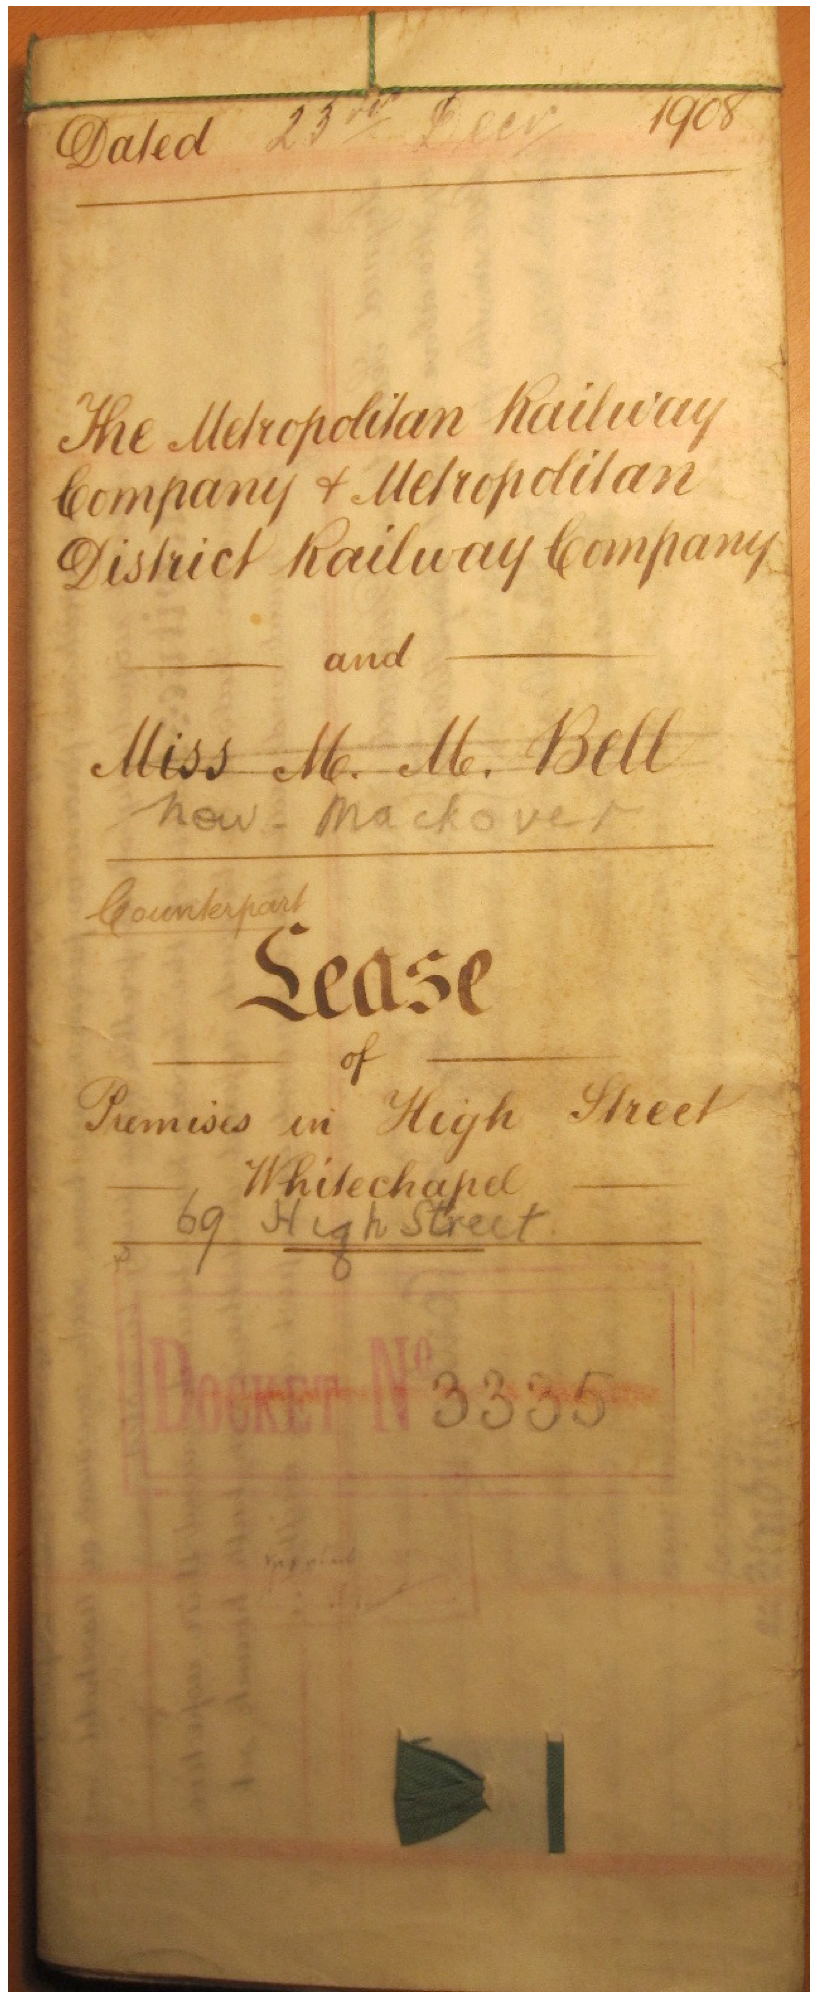 Dated 23rd Decr 1908
The Metropolitan Railway
Company & Metropolitan
District Railway Company
and
Miss M. M. Bell
now - Mackover
Counterpart
Lease
of
Premises in High Street
Whitechapel
69 High Street
DOCKET No 3335